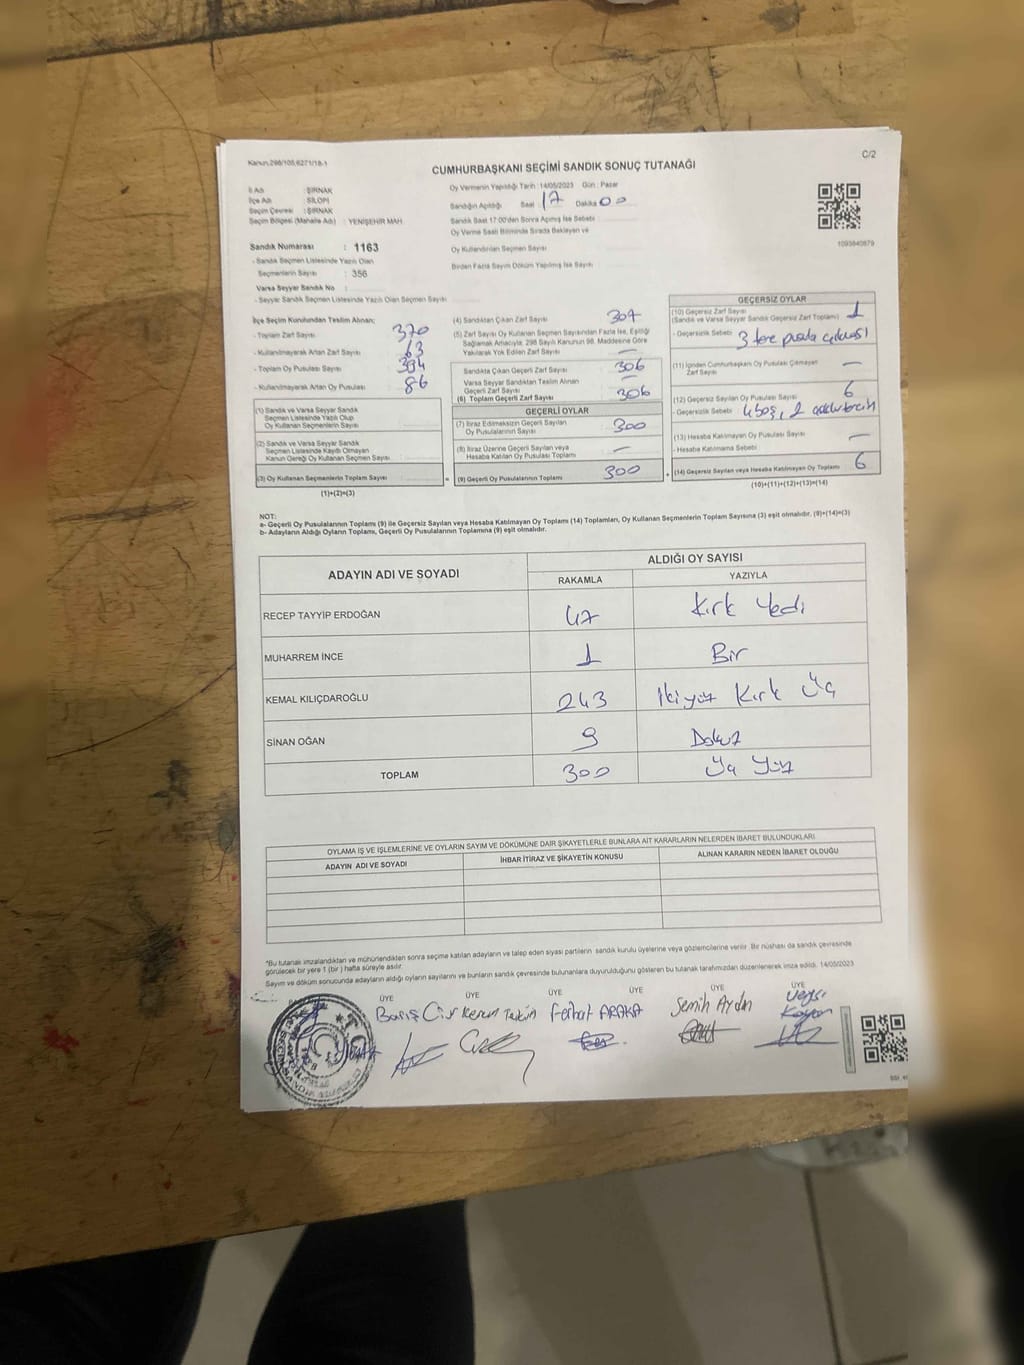 Kanun:298/105,6271/18-1
C/2
CUMHURBAŞKANI SEÇİMİ SANDIK SONUÇ TUTANAĞI
İl Adı : ŞIRNAK
İlçe Adı : SİLOPİ
Seçim Çevresi : ŞIRNAK
Seçim Bölgesi (Mahalle Adı) : YENİŞEHİR MAH.
Oy Vermenin Yapıldığı Tarih : 14/05/2023 Gün : Pazar
Sandığın Açıldığı Saat 17 Dakika 00
Sandık Saat 17:00'den Sonra Açılmış İse Sebebi
Oy Verme Saati Bitiminde Sırada Bekleyen ve
Oy Kullandırılan Seçmen Sayısı
Birden Fazla Sayım Döküm Yapılmış İse Sayısı
1093840879
Sandık Numarası : 1163
- Sandık Seçmen Listesinde Yazılı Olan
Seçmenlerin Sayısı : 356
Varsa Seyyar Sandık No :
- Seyyar Sandık Seçmen Listesinde Yazılı Olan Seçmen Sayısı
İlçe Seçim Kurulundan Teslim Alınan;
- Toplam Zarf Sayısı 370
- Kullanılmayarak Artan Zarf Sayısı 63
- Toplam Oy Pusulası Sayısı
- Kullanılmayarak Artan Oy Pusulası 86
(1) Sandık ve Varsa Seyyar Sandık
Seçmen Listesinde Yazılı Olup
Oy Kullanan Seçmenlerin Sayısı
(2) Sandık ve Varsa Seyyar Sandık
Seçmen Listesinde Kayıtlı Olmayan
Kanun Gereği Oy Kullanan Seçmen Sayısı
(3) Oy Kullanan Seçmenlerin Toplam Sayısı
(1)+(2)=(3)
(4) Sandıktan Çıkan Zarf Sayısı 307
(5) Zarf Sayısı Oy Kullanan Seçmen Sayısından Fazla İse, Eşitliği
Sağlamak Amacıyla, 298 Sayılı Kanunun 98. Maddesine Göre
Yakılarak Yok Edilen Zarf Sayısı —
Sandıkta Çıkan Geçerli Zarf Sayısı 306
Varsa Seyyar Sandıktan Teslim Alınan
Geçerli Zarf Sayısı —
(6) Toplam Geçerli Zarf Sayısı 306
GEÇERLİ OYLAR
(7) İtiraz Edilmeksizin Geçerli Sayılan
Oy Pusulalarının Sayısı 300
(8) İtiraz Üzerine Geçerli Sayılan veya
Hesaba Katılan Oy Pusulası Toplamı —
(9) Geçerli Oy Pusulalarının Toplamı 300
GEÇERSİZ OYLAR
(10) Geçersiz Zarf Sayısı
(Sandık ve Varsa Seyyar Sandık Geçersiz Zarf Toplamı) 1
- Geçersizlik Sebebi 3 tane pusula çıkması
(11) İçinden Cumhurbaşkanı Oy Pusulası Çıkmayan
Zarf Sayısı —
(12) Geçersiz Sayılan Oy Pusulası Sayısı 6
- Geçersizlik Sebebi 4 boş, 2
(13) Hesaba Katılmayan Oy Pusulası Sayısı —
- Hesaba Katılmama Sebebi
(14) Geçersiz Sayılan veya Hesaba Katılmayan Oy Toplamı 6
(10)+(11)+(12)+(13)=(14)
NOT:
a- Geçerli Oy Pusulalarının Toplamı (9) ile Geçersiz Sayılan veya Hesaba Katılmayan Oy Toplamı (14) Toplamları, Oy Kullanan Seçmenlerin Toplam Sayısına (3) eşit olmalıdır. (9)+(14)=(3)
b- Adayların Aldığı Oyların Toplamı, Geçerli Oy Pusulalarının Toplamına (9) eşit olmalıdır.
ADAYIN ADI VE SOYADI
ALDIĞI OY SAYISI
RAKAMLA YAZIYLA
RECEP TAYYİP ERDOĞAN 47 Kırk Yedi
MUHARREM İNCE 1 Bir
KEMAL KILIÇDAROĞLU 243 İkiyüz Kırk Üç
SİNAN OĞAN 9 Dokuz
TOPLAM 300 Üç Yüz
OYLAMA İŞ VE İŞLEMLERİNE VE OYLARIN SAYIM VE DÖKÜMÜNE DAİR ŞİKAYETLERLE BUNLARA AİT KARARLARIN NELERDEN İBARET BULUNDUKLARI
ADAYIN ADI VE SOYADI İHBAR İTİRAZ VE ŞİKAYETİN KONUSU ALINAN KARARIN NEDEN İBARET OLDUĞU
*Bu tutanak imzalandıktan ve mühürlendikten sonra seçime katılan adayların ve talep eden siyasi partilerin sandık kurulu üyelerine veya gözlemcilerine verilir. Bir nüshası da sandık çevresinde
görülecek bir yere 1 (bir) hafta süreyle asılır.
Sayım ve döküm sonucunda adayların aldığı oyların sayılarını ve bunların sandık çevresinde bulunanlara duyurulduğunu gösteren bu tutanak tarafımızdan düzenlenerek imza edildi. 14/05/2023
ÜYE ÜYE ÜYE ÜYE ÜYE ÜYE
Barış Kerem Ferhat ARAKA Semih Aydın Veysi